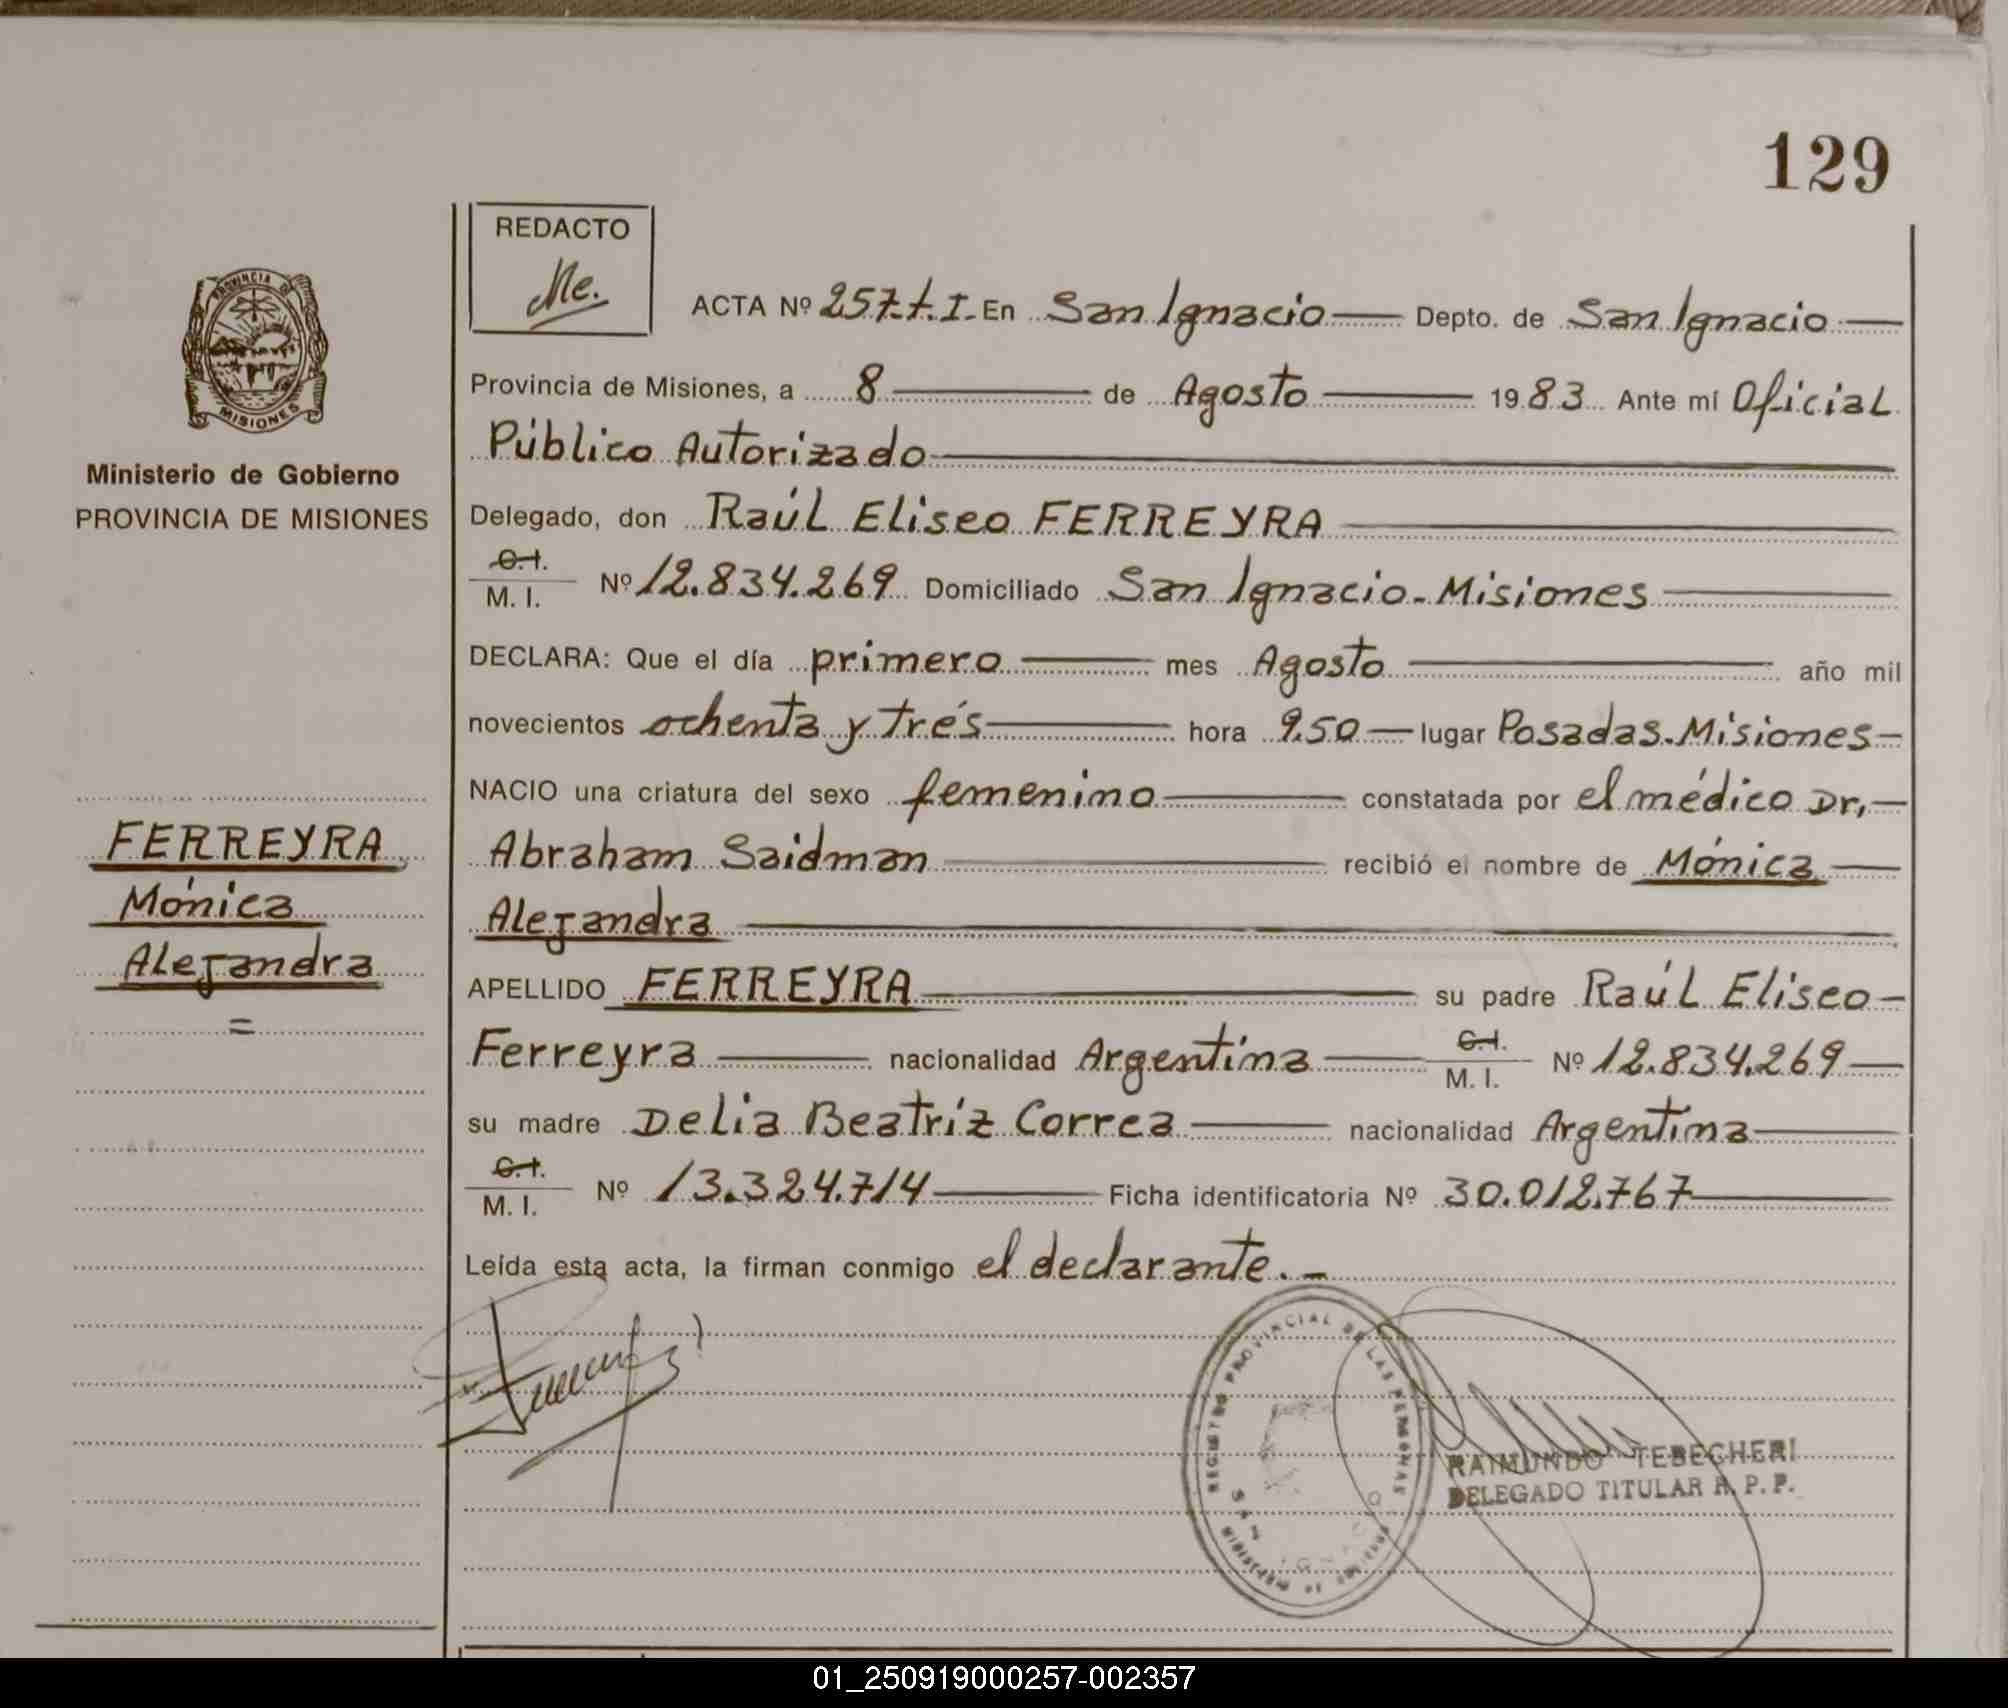 129
REDACTO
Me.
PROVINCIA DE
MISIONES
Ministerio de Gobierno
PROVINCIA DE MISIONES
FERREYRA
Mónica
Alejandra
=
ACTA Nº 257.t.I. En San Ignacio — Depto. de San Ignacio —
Provincia de Misiones, a 8 — de Agosto — 1983 Ante mí Oficial
Público Autorizado —
Delegado, don Raúl Eliseo FERREYRA —
C.I.
M. I. Nº 12.834.269 Domiciliado San Ignacio-Misiones —
DECLARA: Que el día primero — mes Agosto — año mil
novecientos ochenta y trés — hora 9.50 — lugar Posadas-Misiones —
NACIO una criatura del sexo femenino — constatada por el médico Dr. —
Abraham Saidman — recibió el nombre de Mónica —
Alejandra —
APELLIDO FERREYRA — su padre Raúl Eliseo —
Ferreyra — nacionalidad Argentina — C.I.
M. I. Nº 12.834.269 —
su madre Delia Beatríz Correa — nacionalidad Argentina —
C.I.
M. I. Nº 13.324.714 — Ficha identificatoria Nº 30.012.767 —
Leída esta acta, la firman conmigo el declarante. —
REGISTRO PROVINCIAL DE LAS PERSONAS
SAN IGNACIO
RAIMUNDO TEBECHERI
DELEGADO TITULAR R. P. P.
01_250919000257-002357